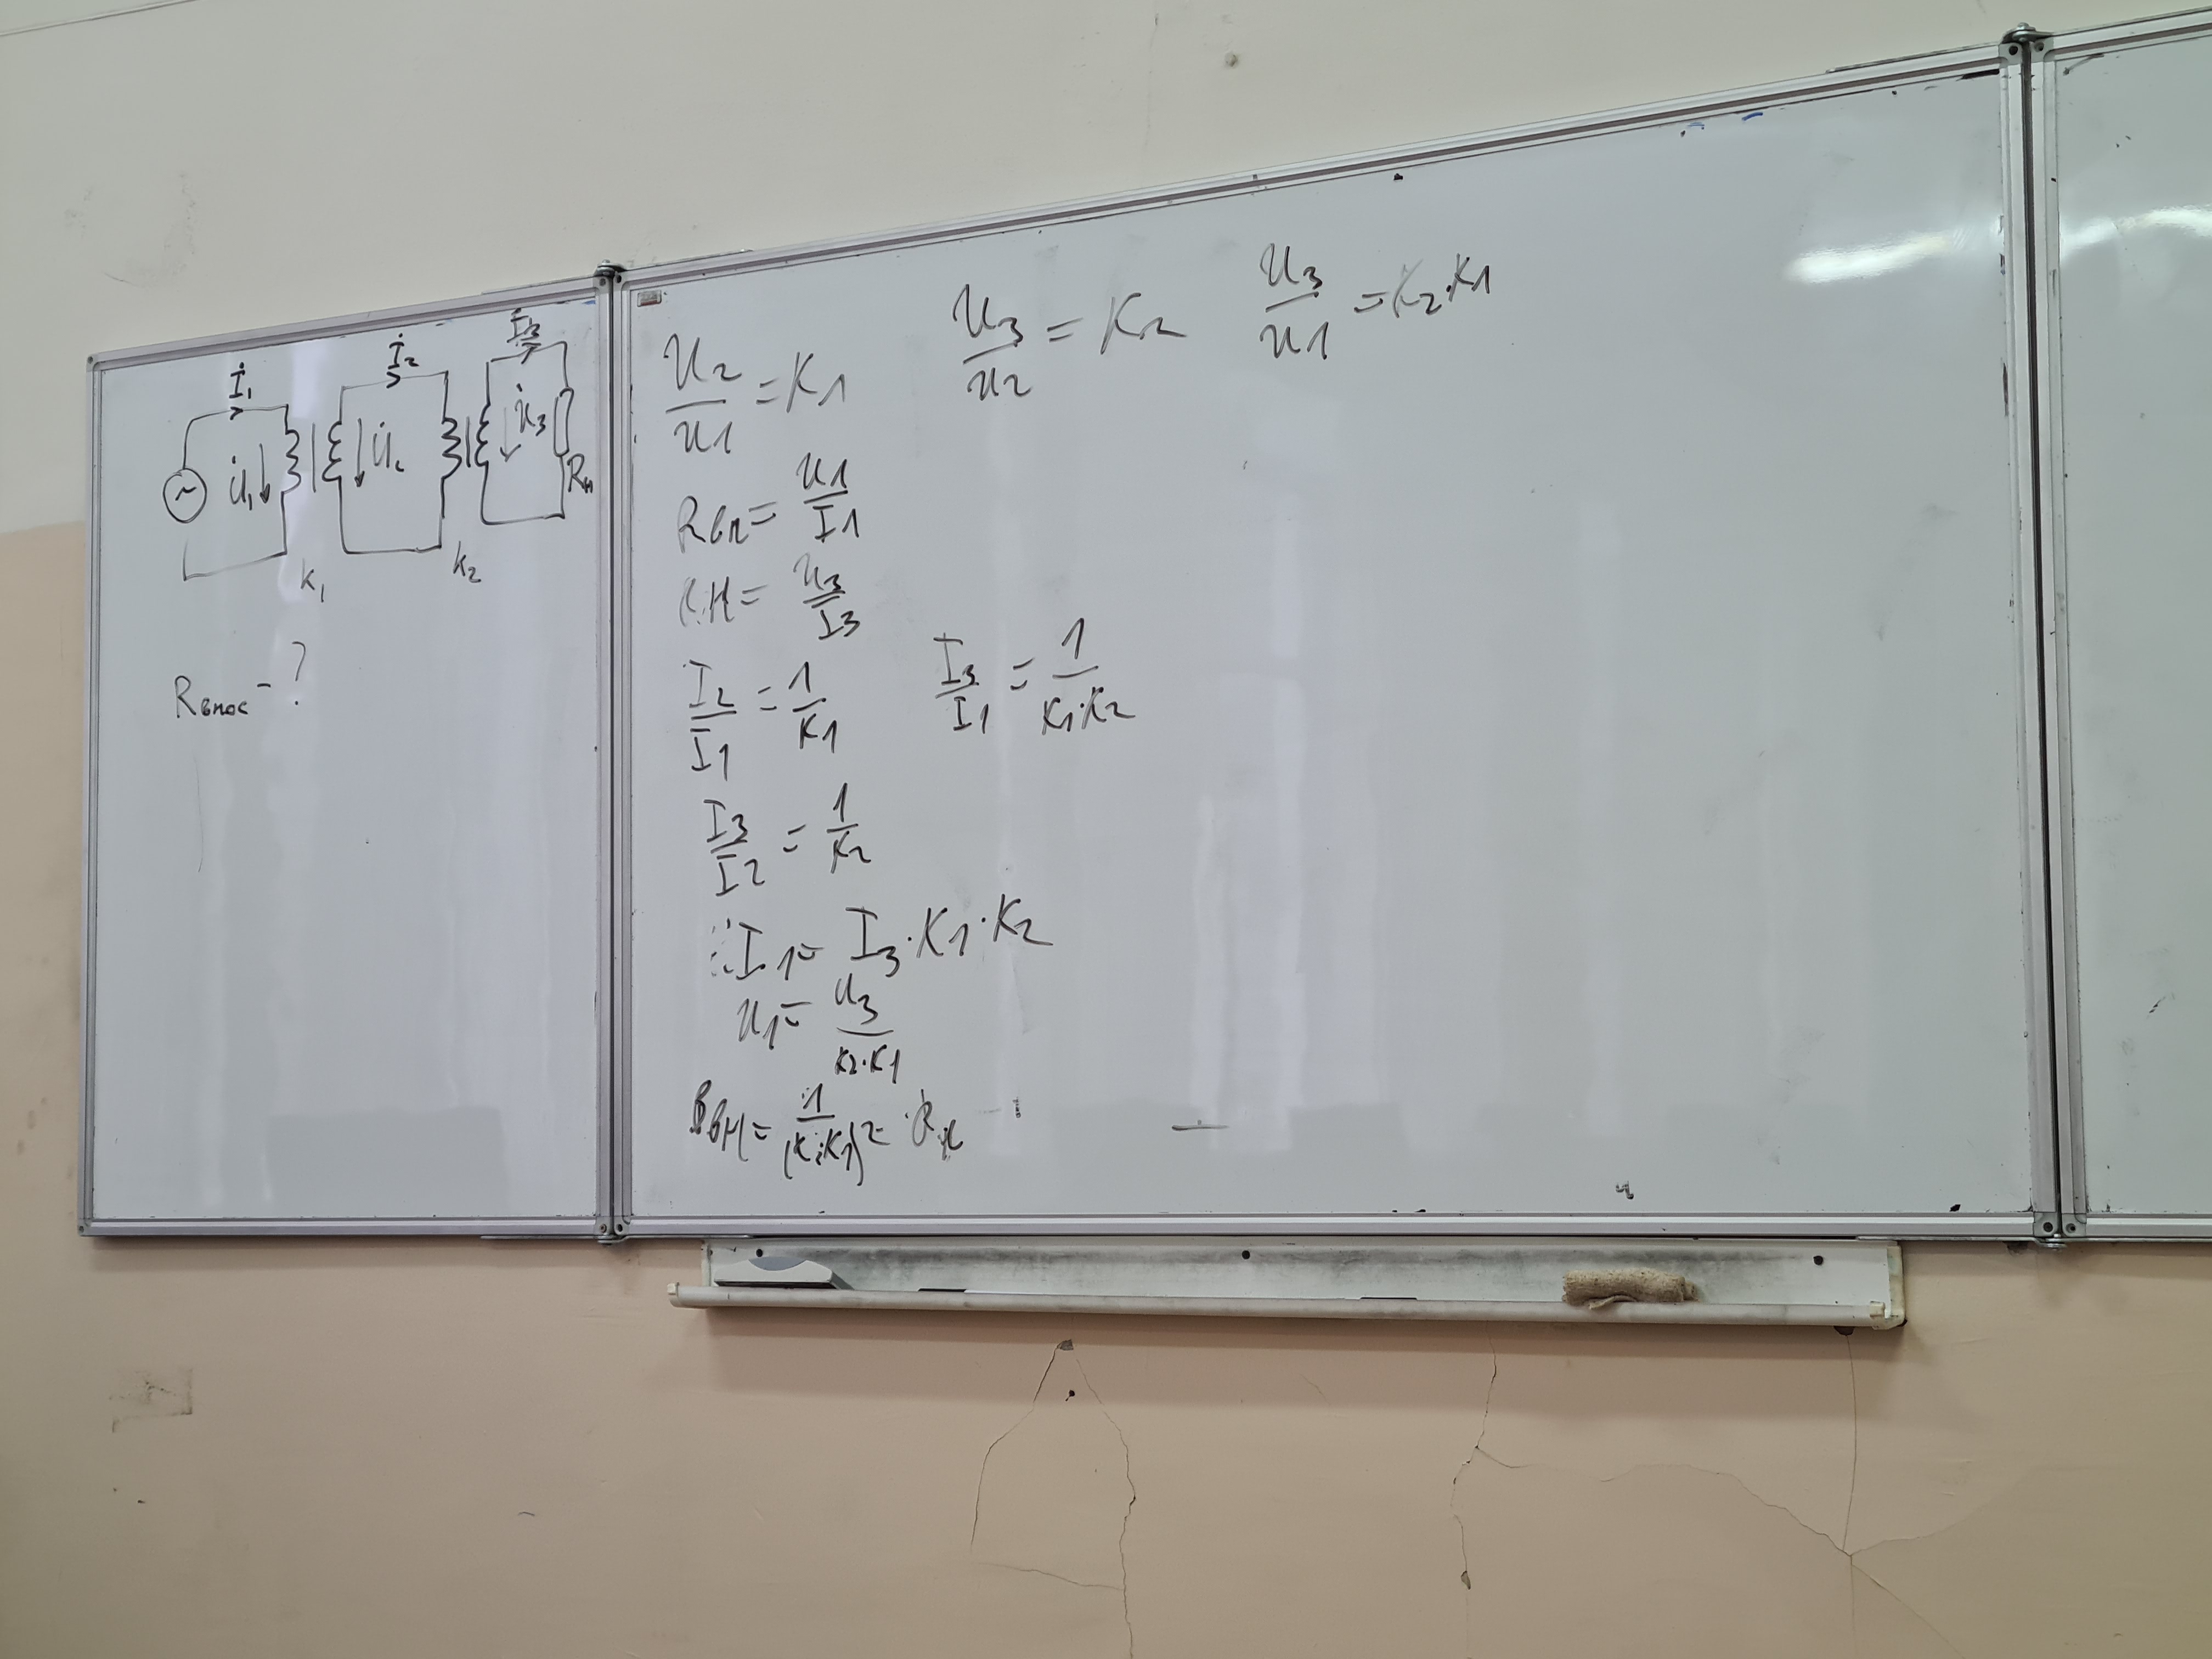 İ₁
İ₂
İ₃
U̇₁
U̇₂
U̇₃
Rн
K₁
K₂
Rвнос - ?
U2/U1 = K1
U3/U2 = K2
U3/U1 = K2·K1
Rвн = U1/I1
RН = U3/I3
I2/I1 = 1/K1
I3/I1 = 1/(K1·K2)
I3/I2 = 1/K2
I1 = I3·K1·K2
U1 = U3/(K2·K1)
Rвн = 1/(K2·K1)² · Rн